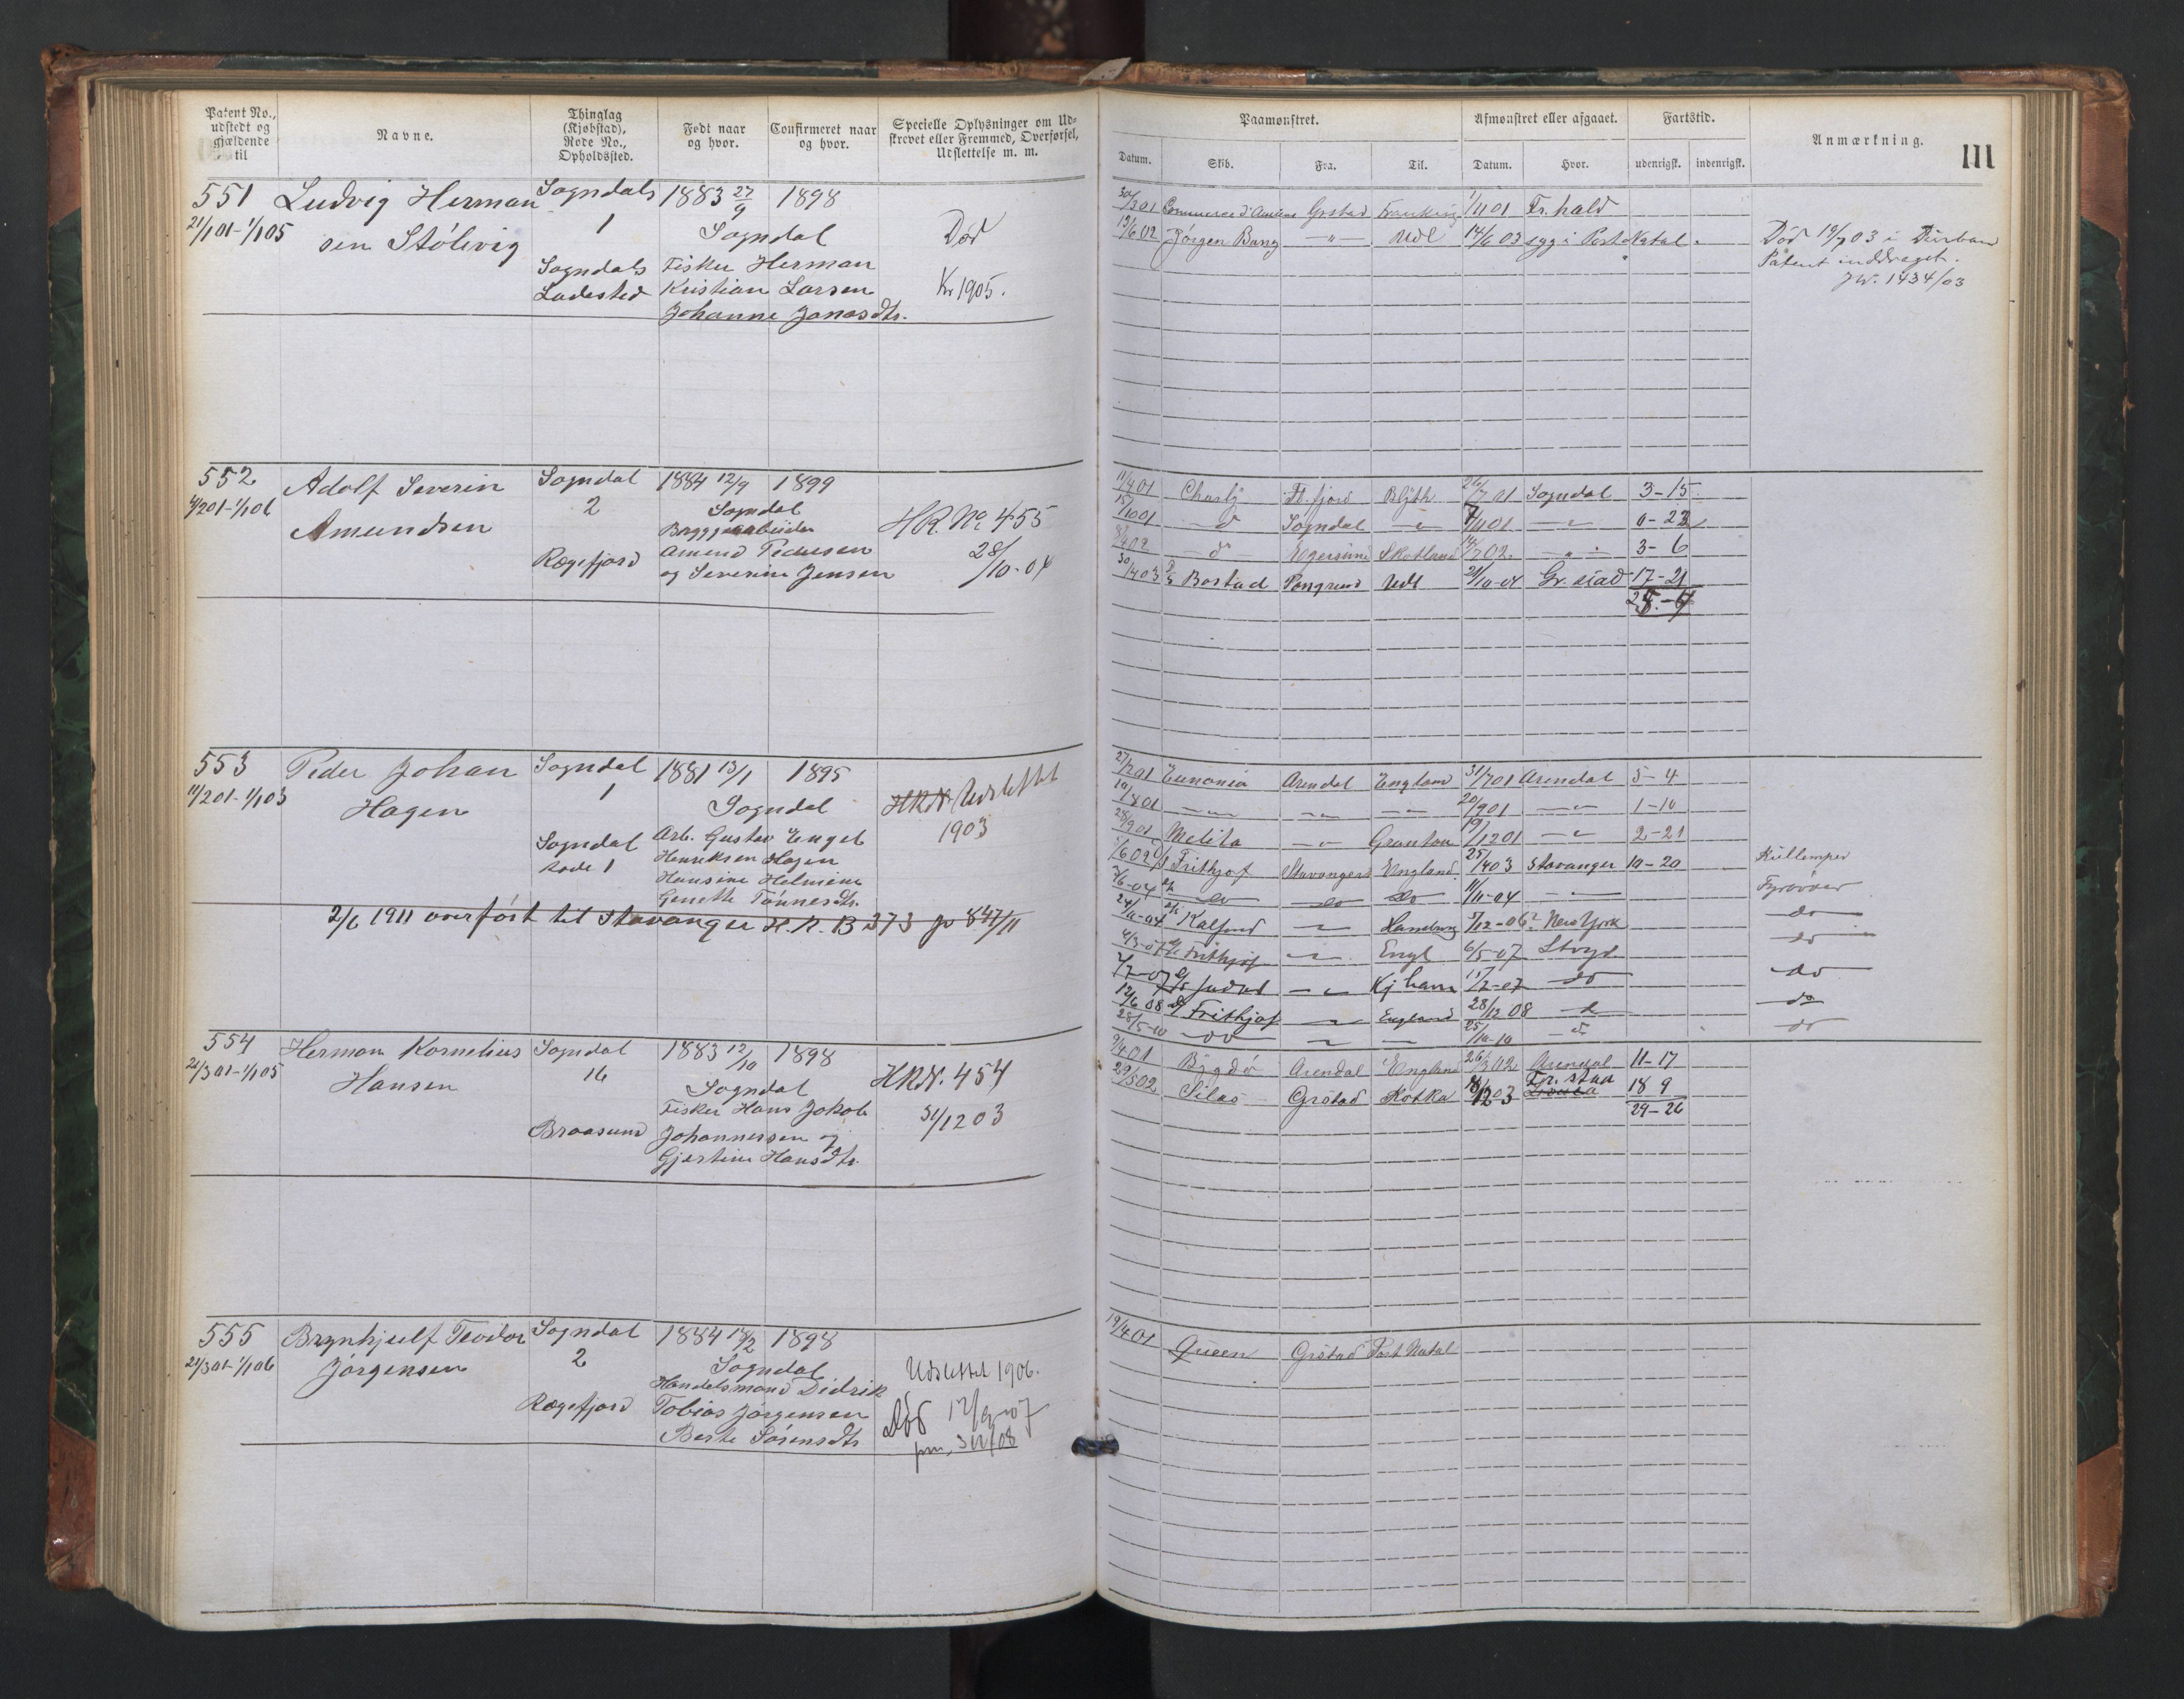 Patent No., udstedt og gjældende til
Navne.
Thinglag (Kjøbstad), Rode No., Opholdssted.
Født naar og hvor.
Confirmeret naar og hvor.
Specielle Oplysninger om Udskrevet eller Fremmed, Overførsel, Udslettelse m. m.
Paamønstret.
Afmønstret eller afgaaet.
Fartstid.
Anmærkning.
111
Datum. Skib. Fra. Til. Datum. Hvor. udenrigsk. indenrigsk.
551 Ludvig Herman Sogndals 1883 27/9 1898
21/1 01 - 1/1 05 sen Stölsvig 1 Sogndal Död
Sogndals Fisker Herman
Ladested Kristian Larsen Kr 1905.
Johanne Janasdtr.
30/3 01 Commerce d'Amiens Grstad 1/11 01 Fr. hald
12/6 02 Jörgen Bang —"— Udl 14/6 03 syg i Port Natal.
Död 19/7 03 i Durban
Patent inddraget.
Jw. 1434/03
552 Adolf Severin Sogndal 1884 12/9 1899
4/2 01 - 1/1 06 Amundsen 2 Sogndal
Rægefjord Amund Pedersen
og Severine Jensen
HR. No 455
28/10-04
11/4 01 Fl. fjord Blyth 26/7 01 Sogndal 3-15
15/10 01 d Sogndal —"— 7/11 01 —"— 0-22
do Egersund Skotland 14/7 02. —"— 3-6
30/4 03 Bastad Porsgrund Udl 21/10-04 Gr. stad 17-21
553 Peder Johan Sogndal 1881 13/1 1895
11/2 01 - 1/1 03 Hagen 1 Sogndal
HRN. Udslettet
1903
Sogndal Arb. Gustav Engel
rode 1 Henriksen Hagen
Hansine Helmine
Gunette Tönnesdtr.
2/6 1911 overfört til Stavanger H. R. B 373 jr 847/11
27/2 01 Eunomia Arendal England 31/7 01 Arendal 5-4
19/8 01 —"— —"— —"— 20/9 01 —"— 1-10
28/9 01 Melita —"— Granton 19/12 01 —"— 2-21
Frithjof Stavanger England. 25/4 03 Stavanger 10-20 Kullemper
do do do 11/11-04 —"— Fyrböder
24/11-04 —"— Hamburg New York do
4/3-07 Frithjof —"— Engl 6/5-07 Stvgr do
—"— Kj havn do do
12/6 08 Frithjof —"— England 28/12 08 do do
28/5-10 do —"— —"— 25/10-10 do do
554 Herman Kornelius Sogndal 1883 12/10 1898
21/3 01 - 1/1 05 Hansen 16 Sogndal
Fisker Hans Jakob
Braasund Johannessen og
Gjertine Hansdtr.
HRN. 454
31/12 03
9/4 01 Bygdö Arendal England 26/3 02 Arendal 11-17
29/5 02 Silas Grstad Kotka Fr. stad 18 9
29-26
555 Brynhjulf Teodor Sogndal 1884 18/2 1898
21/3 01 - 1/1 06 Jörgensen 2 Sogndal
Handelsmand Didrik
Rægefjord Tobias Jörgensen
Berte Sörensdtr
Udslettet 1906.
Död 12/9-07
19/4 01 Queen Grstad Port Natal